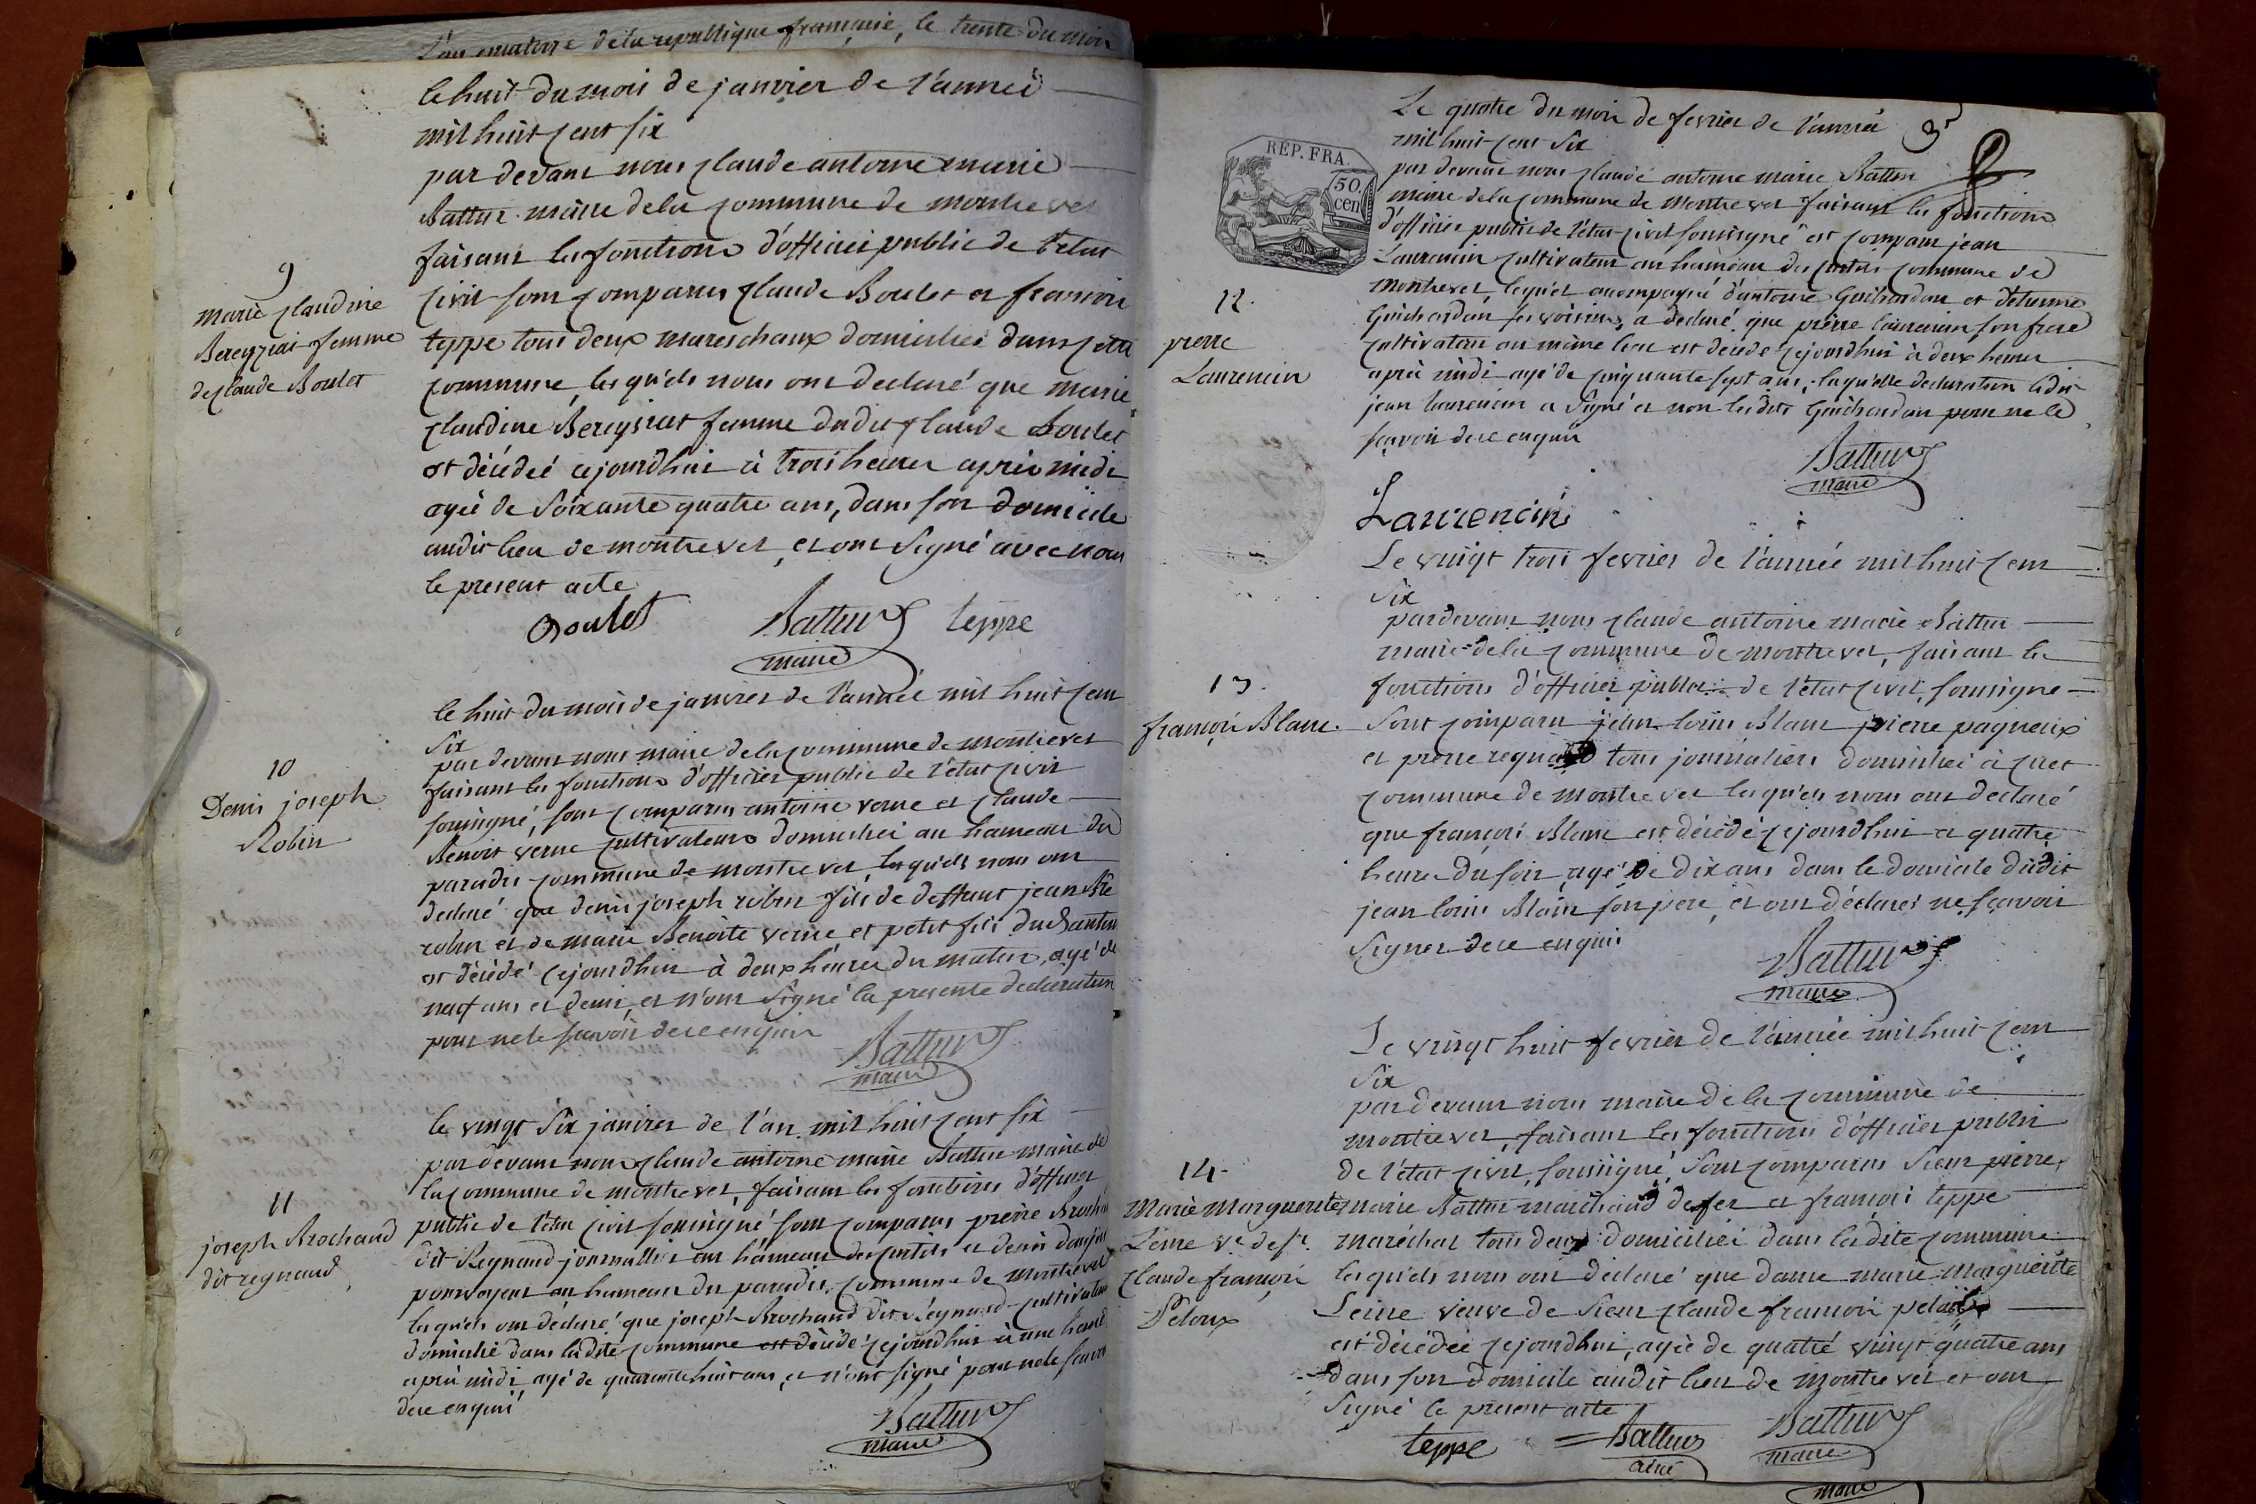 L'an quatorze de la republique française, le trente du mois
le huit du mois de janvier de l'anneé
mil huit cent six
par devant nous claude antoine marie
Battur maire de la commune de montrevel
faisant les fonctions d'officier public de l'etat
civil sont comparus claude Boulet et francois
teppe tous deux mareschaux domiciliés dans cette
commune, les quels nous ont declaré que marie
claudine Bereyziat femme dudit claude Boulet
est décédeé cejourdhui à trois heures après midi
agée de soixante quatre ans, dans son domicile
audit lieu de montrevel, et ont signé avec nous
le present acte
9
marie claudine
Bereyziat femme
de claude Boulet
Boulet Battur teppe
maire
le huit du mois de janvier de l'année mil huit cent
six
par devant nous maire de la commune de montrevel
faisant les fonctions d'officier public de l'état civil
soussigné, sont comparus antoine verne et claude
Benoit verne cultivateurs domiciliés au hameau du
paradis commune de montrevel, les quels nous ont
declaré que denis joseph robin fils de deffunt jean Bte
robin et de marie Benoite verne et petit fils dud antoine
est décédé cejourdhui à deux heures du matin, agé de
neuf ans et demi, et n'ont signé la presente declaration
pour ne le scavoir de ce enquis
10
Denis joseph
Robin
Battur
maire
le vingt six janvier de l'an mil huit cent six
par devant nous claude antoine marie Battur maire de
la commune de montrevel, faisant les fonctions d'officier
public de l'état civil soussigné sont comparus pierre Brochand
dit Regnaud journallier au hameau des curtils et denis
pourvoyeur au hameau du paradis, commune de montrevel
les quels ont déclaré que joseph Brochand dit Regnaud cultivateur
domicilié dans ladite commune est décédé cejourdhui à une heure
après midi, agé de quarante huit ans, et n'ont signé pour ne le scavoir
de ce enquis
11
joseph Brochand
dit regnaud
Battur
maire
3
Le quatre du mois de fevrier de l'année
mil huit cent six
par devant nous claude antoine marie Battur
maire de la commune de montrevel faisant les fonctions
d'officier public de l'état civil soussigné est comparu jean
Laurencin cultivateur au hameau des curtils commune de
montrevel, lequel accompagné d'antoine Guichardan et d'etienne
Guichardan ses voisins, a declaré que pierre laurencin son frere
cultivateur au même lieu est décédé cejourdhui à deux heures
après midi agé de cinquante sept ans, laquelle declaration ledit
jean laurencin a signé et non lesdits Guichardan pour ne le
scavoir de ce enquis
REP. FRA.
50.
cen
12.
pierre
Laurencin
Battur
maire
Laurencin
Le vingt trois fevrier de l'année mil huit cent
six
pardevant nous claude antoine marie Battur
maire de la commune de montrevel, faisant les
fonctions d'officier public de l'état civil, soussigné
sont comparu jean louis Blanc pierre pagneux
et pierre regnaud tous journaliers domiciliés à
commune de montrevel les quels nous ont declaré
que françois Blanc est décédé cejourdhui a quatre
heures du soir, agé de dix ans dans le domicile dudit
jean louis Blanc son pere, et ont déclarés ne scavoir
signer de ce enquis
13.
françois Blanc.
Battur
maire
Le vingt huit fevrier de l'année mil huit cent
six
par devant nous maire de la commune de
montrevel, faisant les fonctions d'officier public
de l'état civil, soussigné, sont comparus sieur pierre
marie Battur marchand de fer et francois teppe
maréchal tous deux domiciliés dans ladite commune
les quels nous ont déclaré que dame marie marguerite
Leine veuve de sieur claude francois peloux
est décédée cejourdhui, agée de quatre vingt quatre ans
dans son domicile audit lieu de montrevel et ont
signé le present acte
14.
Marie Marguerite
Leine ve de sr
claude françois
Peloux
teppe Battur Battur
ainé maire
maire